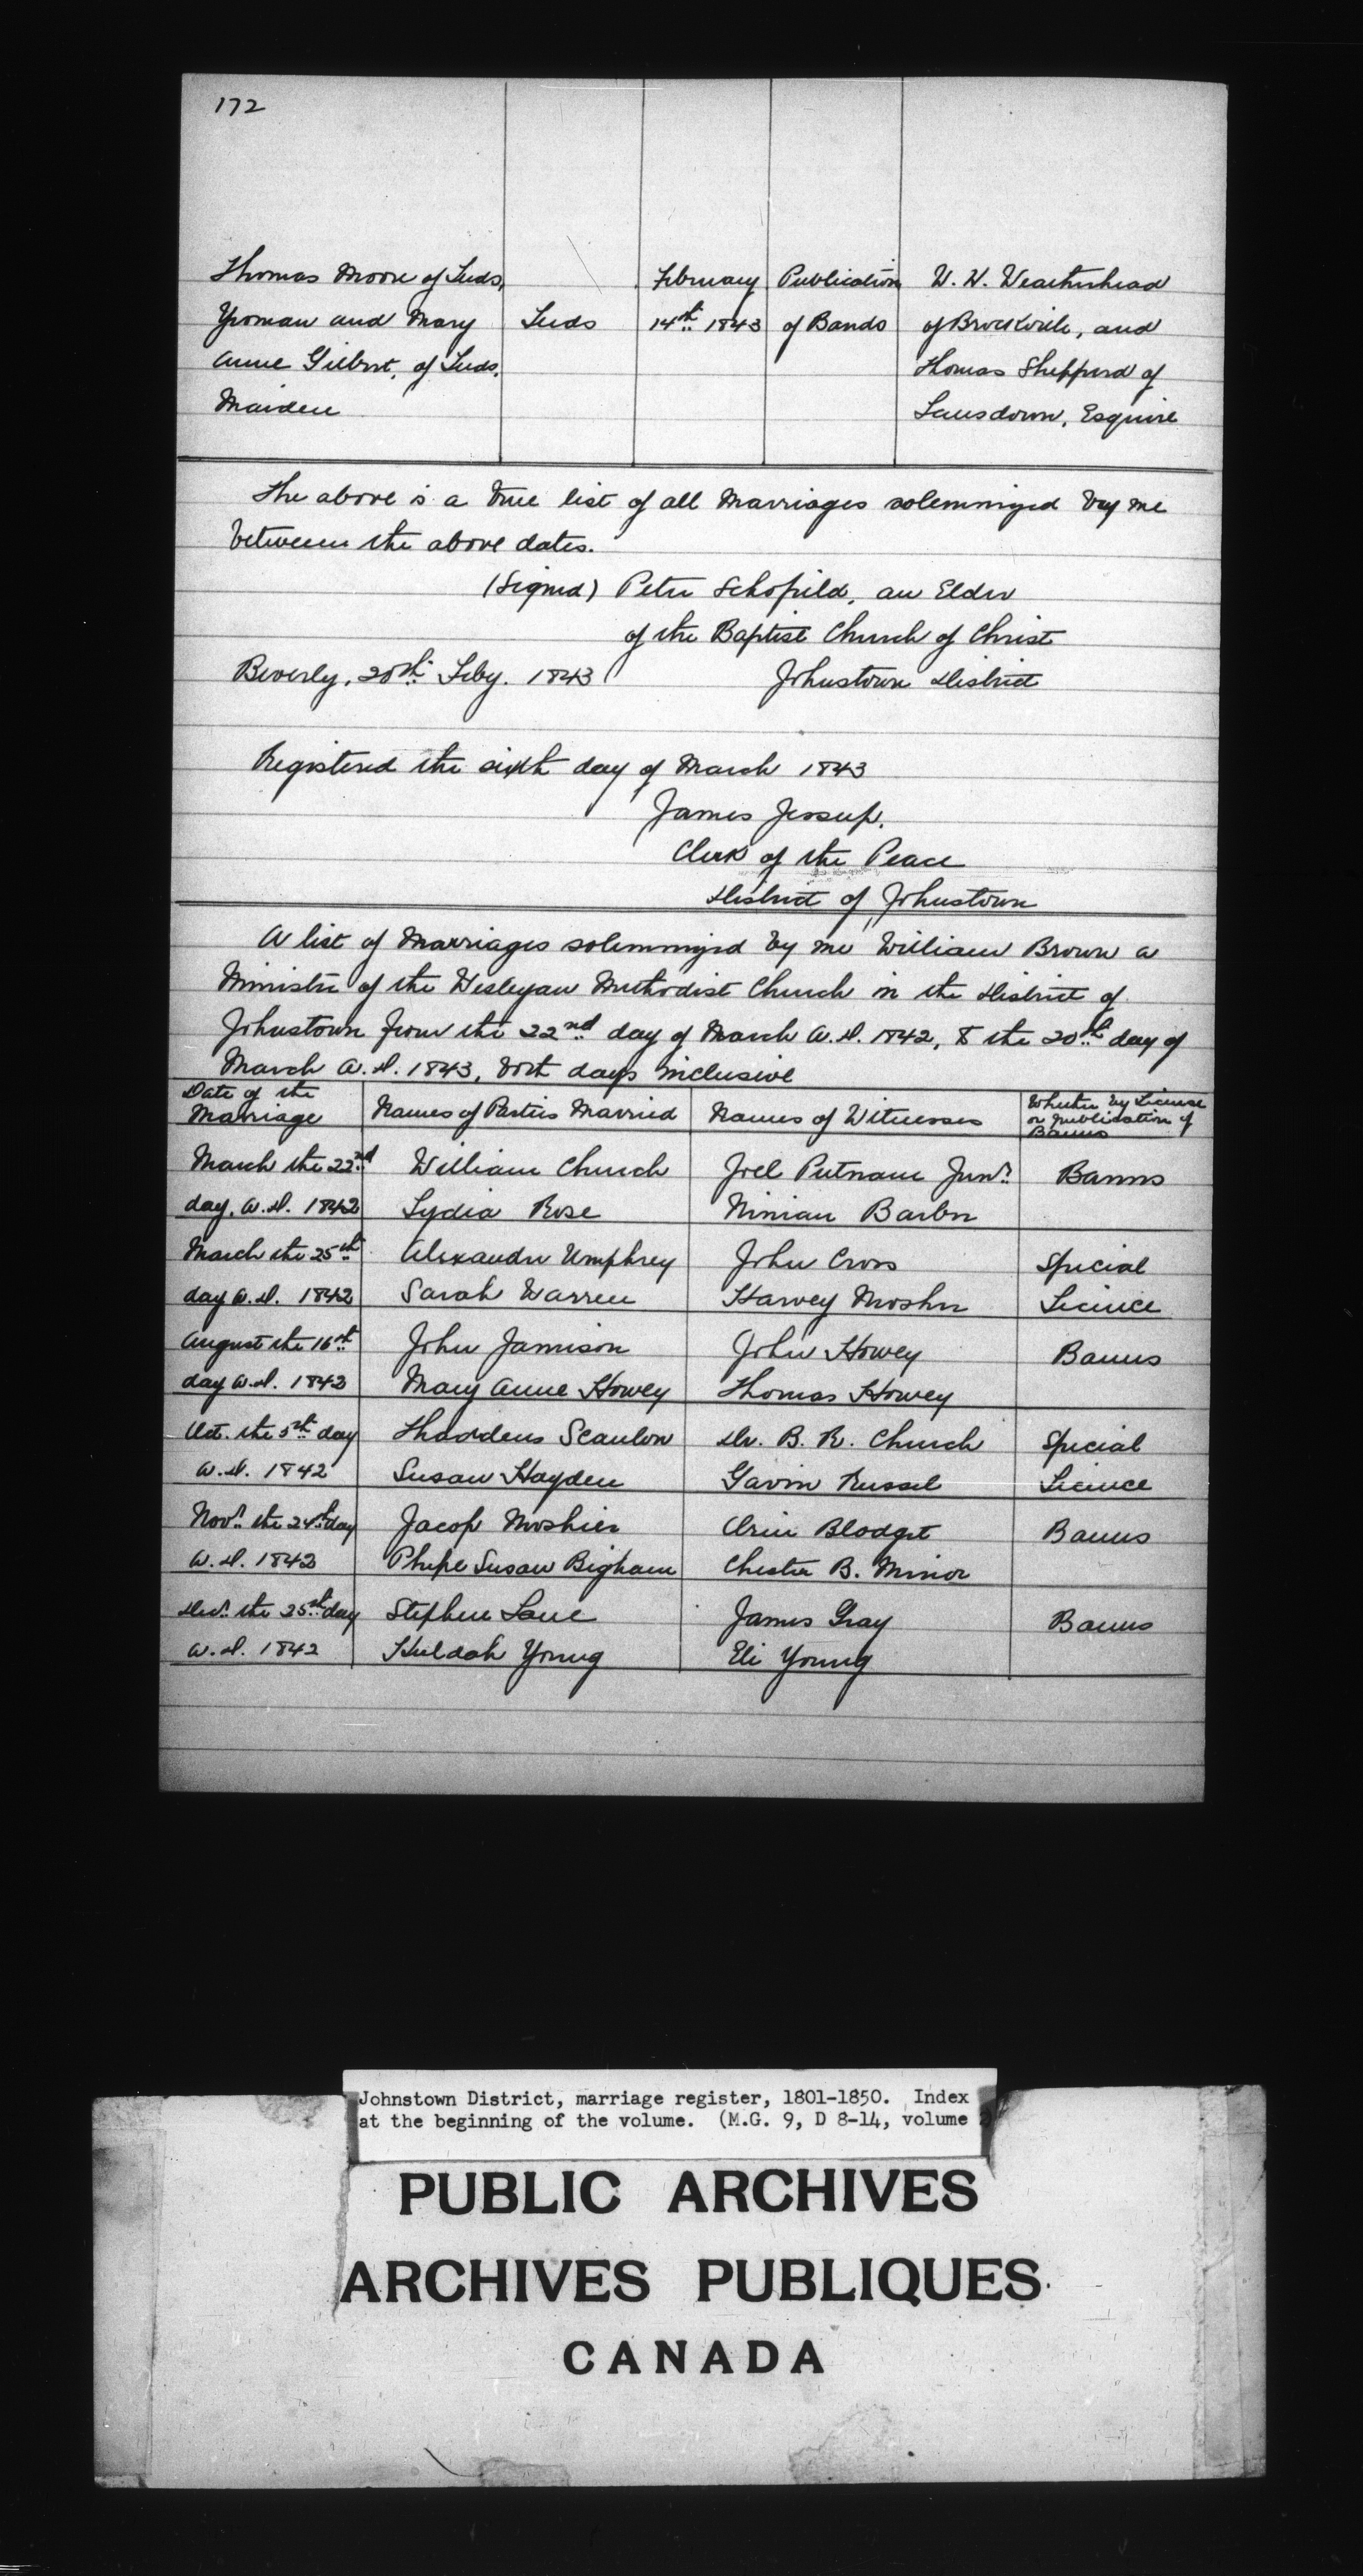 172
Thomas Moore of Leeds, February Publication W. H. Weatherhead
Yeoman and Mary Leeds 14th 1843 of Bands of Brockville, and
Anne Gilbert, of Leeds, Thomas Shepperd of
Maiden Lansdown, Esquire
The above is a true list of all Marriages solemnized by me
between the above dates.
(Signed) Peter Schofield, an Elder
of the Baptist Church of Christ
Beverly, 20th Feby. 1843 Johnstown District
Registered the sixth day of March 1843
James Jessup.
Clerk of the Peace
District of Johnstown
A list of Marriages solemnized by me William Brown a
Minister of the Wesleyan Methodist Church in the District of
Johnstown from the 22nd day of March A.D. 1842, to the 20th day of
March A.D. 1843, both days inclusive
Date of the Marriage Names of Parties Married Names of Witnesses Whether by License or publication of Banns
March the 22nd William Church Joel Putnam Junr. Banns
day, A.D. 1842 Lydia Rose Ninian Barber
March the 25th Alexander Umphrey John Cross Special
day A.D. 1842 Sarah Warren Harvey Mosher Licence
August the 16th John Jamison John Howey Banns
day A.D. 1842 Mary Anne Howey Thomas Howey
Oct. the 5th day Thaddeus Scanlon Dr. B. R. Church Special
A.D. 1842 Susan Hayden Gavin Russel Licence
Novr. the 24th day Jacob Moshier Orin Blodget Banns
A.D. 1842 Phepe Susan Bigham Chester B. Minor
Decr. the 25th day Stephen Lane James Gray Banns
A.D. 1842 Huldah Young Eli Young
Johnstown District, marriage register, 1801-1850. Index
at the beginning of the volume. (M.G. 9, D 8-14, volume
PUBLIC ARCHIVES
ARCHIVES PUBLIQUES
CANADA